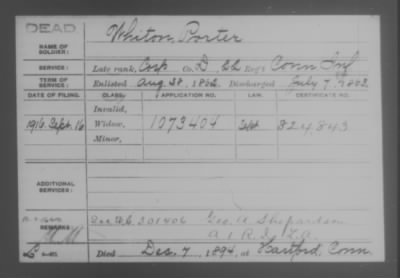 DEAD
Whiton, Porter
NAME OF SOLDIER:
SERVICE: Late rank, Corp Co. D, 22 Reg't Conn Inf
TERM OF SERVICE: Enlisted Aug 28, 1862, Discharged July 7, 1863
DATE OF FILING. CLASS. APPLICATION NO. LAW. CERTIFICATE NO.
Invalid,
1916 Sept. 16 Widow, 1073404 824843
Minor,
ADDITIONAL SERVICES:
201406 Geo. A. Shepardson
REMARKS:
Died Dec. 7, 1894, at Hartford, Conn.